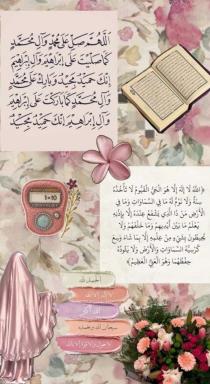 اللَّهُمَّ صَلِّ عَلَى مُحَمَّدٍ وَآلِ مُحَمَّدٍ
كَمَا صَلَّيْتَ عَلَى إِبْرَاهِيمَ وَآلِ إِبْرَاهِيمَ
إِنَّكَ حَمِيدٌ مَجِيدٌ وَبَارِكْ عَلَى مُحَمَّدٍ
وَآلِ مُحَمَّدٍ كَمَا بَارَكْتَ عَلَى إِبْرَاهِيمَ
وَآلِ إِبْرَاهِيمَ إِنَّكَ حَمِيدٌ مَجِيدٌ
﴿اللَّهُ لَا إِلَهَ إِلَّا هُوَ الْحَيُّ الْقَيُّومُ لَا تَأْخُذُهُ
سِنَةٌ وَلَا نَوْمٌ لَهُ مَا فِي السَّمَاوَاتِ وَمَا فِي
الْأَرْضِ مَنْ ذَا الَّذِي يَشْفَعُ عِنْدَهُ إِلَّا بِإِذْنِهِ
يَعْلَمُ مَا بَيْنَ أَيْدِيهِمْ وَمَا خَلْفَهُمْ وَلَا
يُحِيطُونَ بِشَيْءٍ مِنْ عِلْمِهِ إِلَّا بِمَا شَاءَ وَسِعَ
كُرْسِيُّهُ السَّمَاوَاتِ وَالْأَرْضَ وَلَا يَئُودُهُ
حِفْظُهُمَا وَهُوَ الْعَلِيُّ الْعَظِيمُ﴾
الحمد لله
لا إله إلا الله
الله أكبر
سبحان الله وبحمده